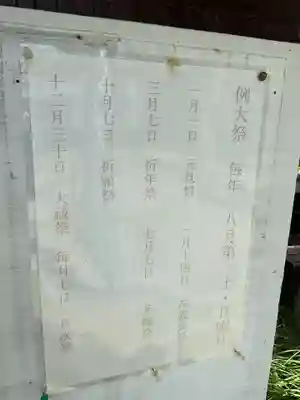 例大祭 毎年 八月第 土・日曜日
一月一日 元旦祭 一月十四日
三月七日 祈年祭 七月七日
十月七日 祈願祭
十二月三十日 大祓祭 毎月七日 月次祭